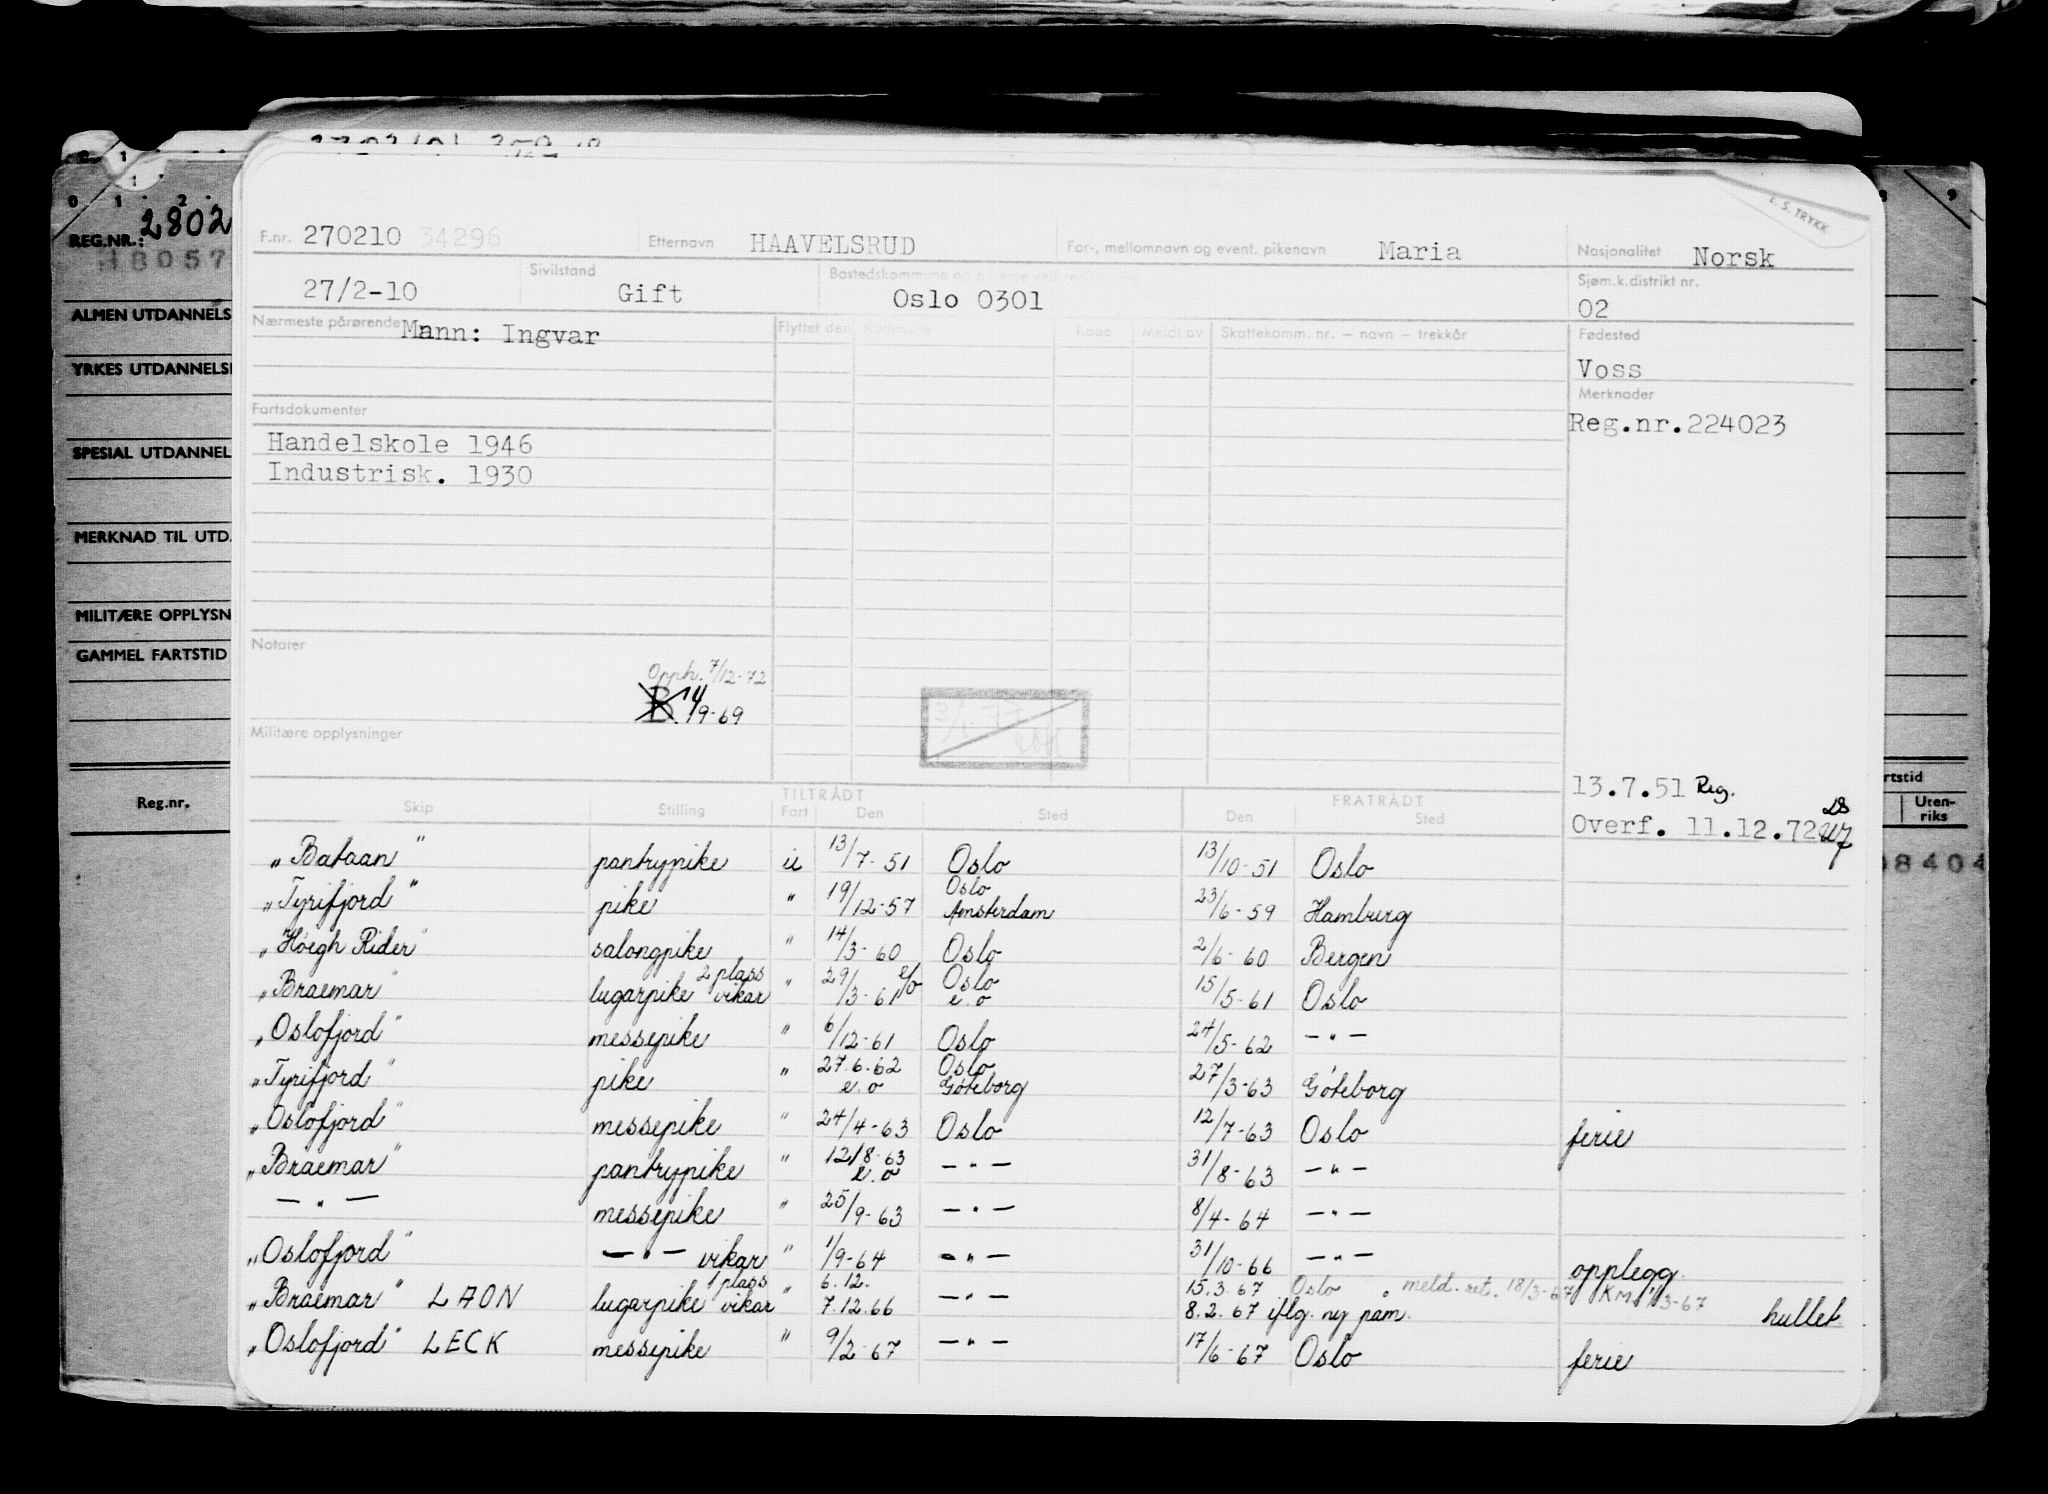 E. S. TRYKK
0 1 2 9
REG.NR.: 2802
F.nr. 270210 34296 Etternavn HAAVELSRUD For-, mellomnavn og event. pikenavn Maria Nasjonalitet Norsk
27/2-10 Sivilstand Gift Bostedskommune og adresse ved registrering Oslo 0301 Sjøm.k.distrikt nr. 02
Nærmeste pårørende Mann: Ingvar Flyttet den Kommune Kode Meldt av Skattekomm. nr. – navn – trekkår Fødested
Voss
Merknader
Reg.nr.224023
Fartsdokumenter
Handelskole 1946
Industrisk. 1930
ALMEN UTDANNELS
YRKES UTDANNELS
SPESIAL UTDANNEL
MERKNAD TIL UTD.
MILITÆRE OPPLYSN
GAMMEL FARTSTID
Reg.nr.
Notater
Opph. 7/12-72
B. 14/9-69
Militære opplysninger
13.7.51 Reg.
Overf. 11.12.72
rtstid
Uten-
riks
8404
TILTRÅDT FRATRÅDT
Skip Stilling Fart Den Sted Den Sted
"Bataan" pantrypike u 13/7-51 Oslo 13/10-51 Oslo
"Tyrifjord" pike " 19/12-57 Oslo Amsterdam 23/6-59 Hamburg
"Höegh Rider" salongpike " 14/3-60 Oslo 2/6-60 Bergen
"Braemar" lugarpike 2 plass vikar " 29/3-61 e/o Oslo e.o 15/5-61 Oslo
"Oslofjord" messepike " 6/12-61 Oslo 24/5-62 — " —
"Tyrifjord" pike " 27.6.62 e.o Oslo Göteborg 27/3-63 Göteborg
"Oslofjord" messepike " 24/4-63 Oslo 12/7-63 Oslo ferie
"Braemar" pantrypike " 12/8-63 e.o — " — 31/8-63 — " —
— " — messepike " 25/9-63 — " — 8/4-64 — " —
"Oslofjord" — " — vikar " 1/9-64 — " — 31/10-66 — " — opplegg.
"Braemar" LAON lugarpike 1 plass vikar " 6.12. 7.12.66 — " — 15.3.67 Oslo meld. ret. 18/3-67 KM
8.2.67 iflg. ny pam. hullet.
"Oslofjord" LECK messepike " 9/2-67 — " — 17/6-67 Oslo ferie